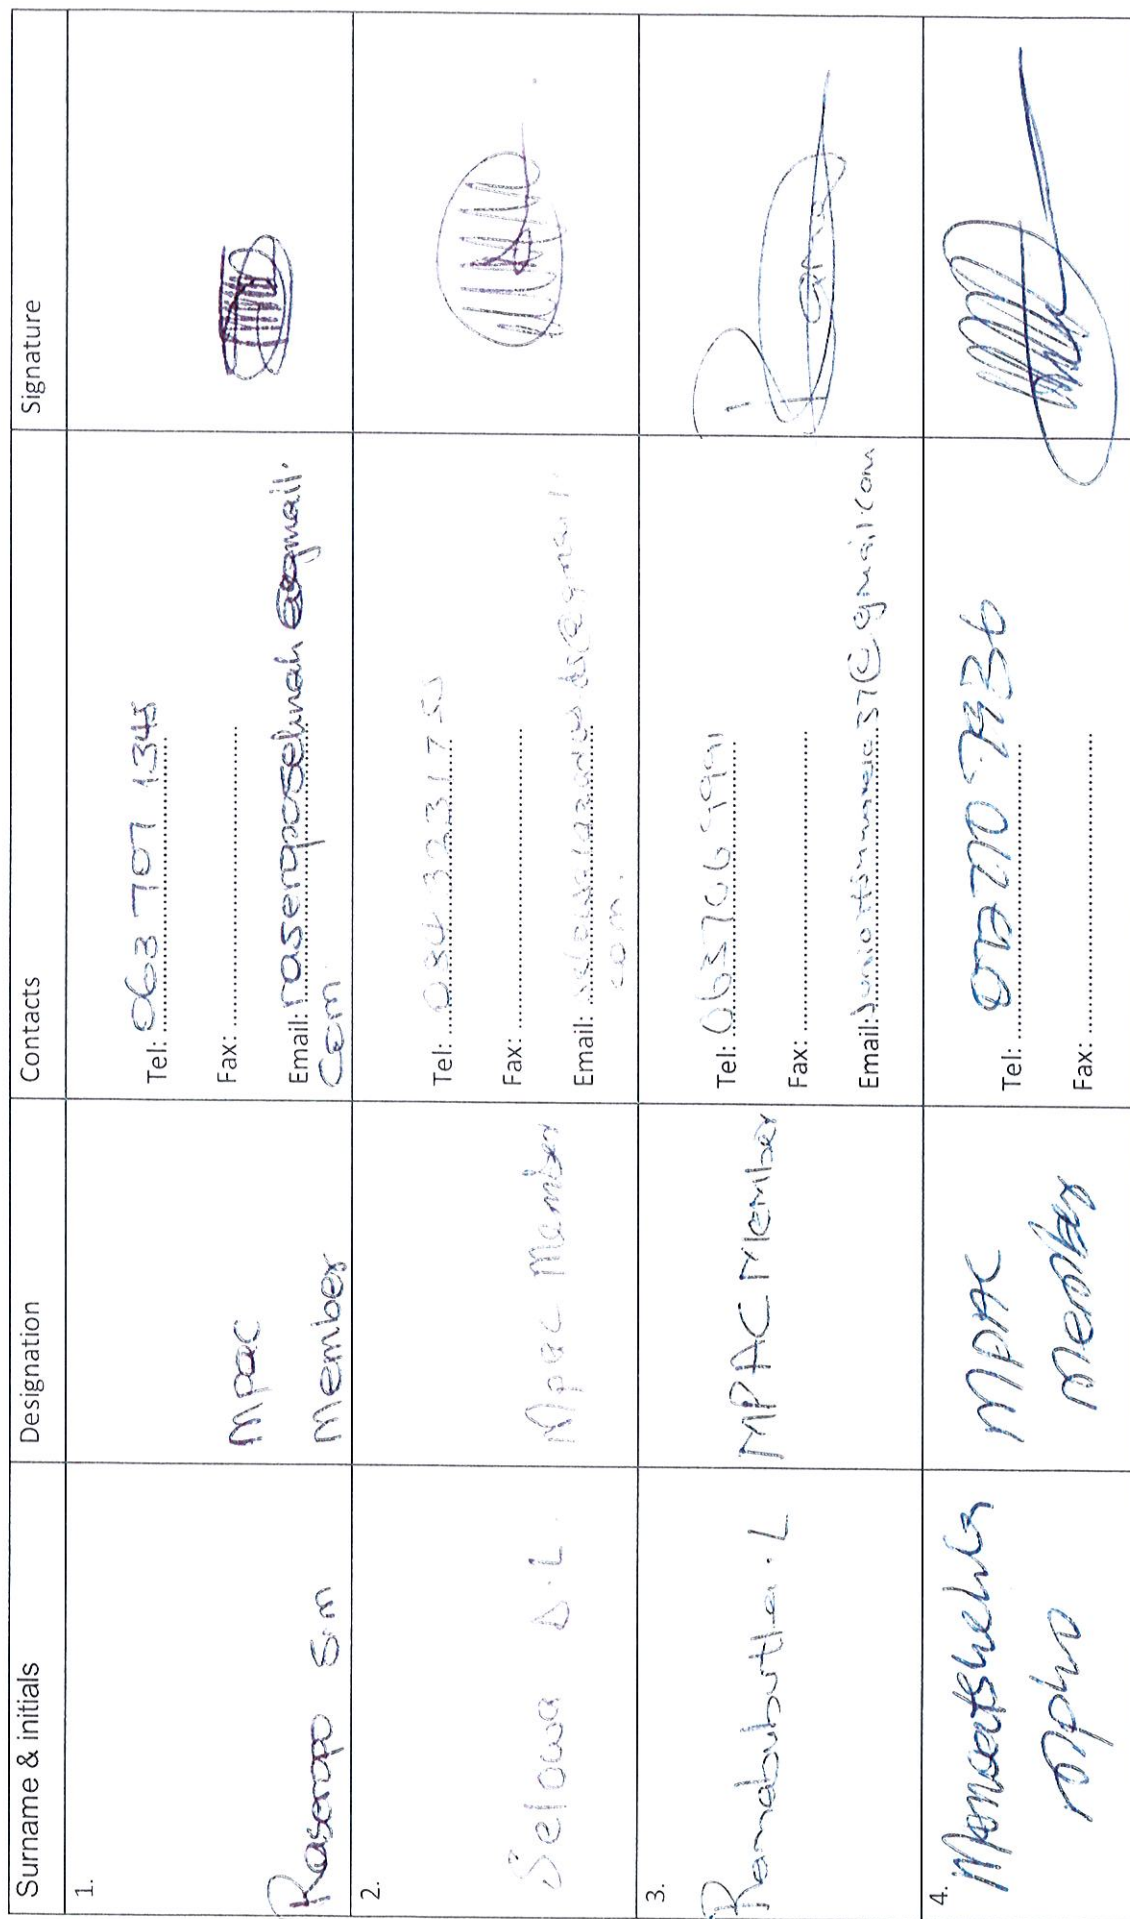 Surname & initials Designation Contacts Signature
1.
Raseropo S.M
Mpac
Member
Tel: 063 707 1345
Fax:
Email: raseroposelinah@gmail.
com
2.
Selowa D.L
Mpac Member
Tel: 084 323 17 50
Fax:
Email:
com.
3.
Ramabubutla.L
MPAC Member
Tel: 0637069991
Fax:
Email:
4.
Mpho
MPAC
Member
Tel: 0722057936
Fax: